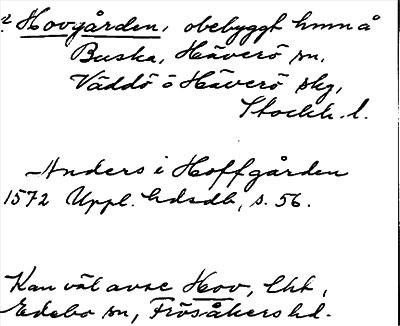 ? Hovgården, obebyggt hmn å
Buska, Häverö sn,
Väddö ö Häverö skg,
Stockh. l.
Anders i Hoffgården
1572 Uppl. hdsdb, s. 56.
Kan väl avse Hov, Ekt,
Edebo sn, Frösåkers hd.